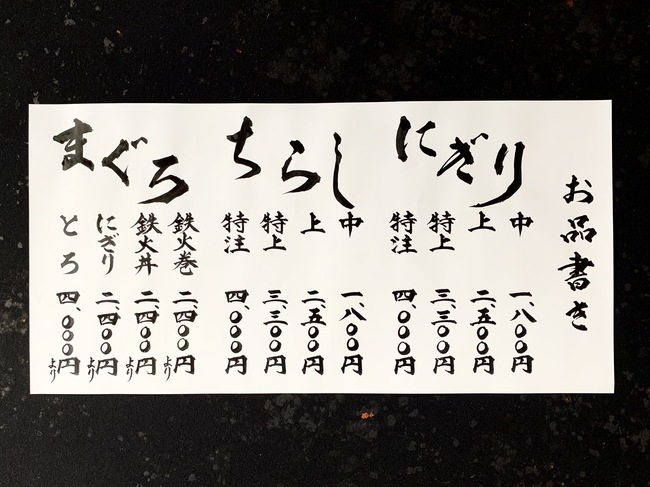 お品書き
にぎり
中 一、八〇〇円
上 二、五〇〇円
特上 三、三〇〇円
特注 四、〇〇〇円
ちらし
中 一、八〇〇円
上 二、五〇〇円
特上 三、三〇〇円
特注 四、〇〇〇円
まぐろ
鉄火巻 二、四〇〇円より
鉄火丼 二、四〇〇円より
にぎり 二、四〇〇円より
とろ 四、〇〇〇円より